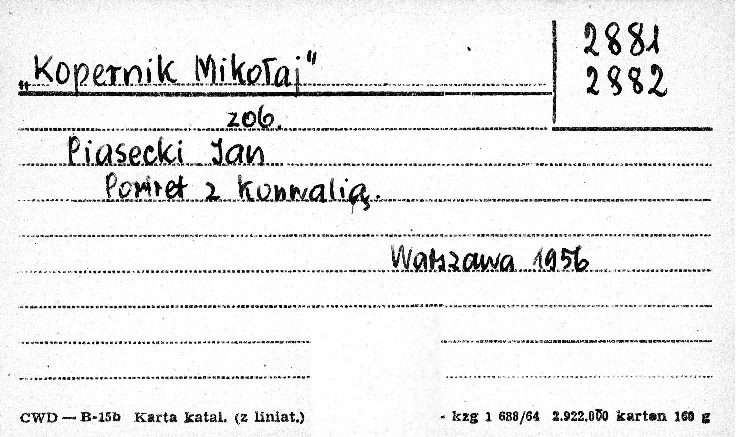 2881
2882
„Kopernik Mikołaj"
zob.
Piasecki Jan
Portret z konwalią.
Warszawa 1956
CWD — B-15b Karta katal. (z liniat.)
- kzg 1 688/64 2.922.000 karton 160 g